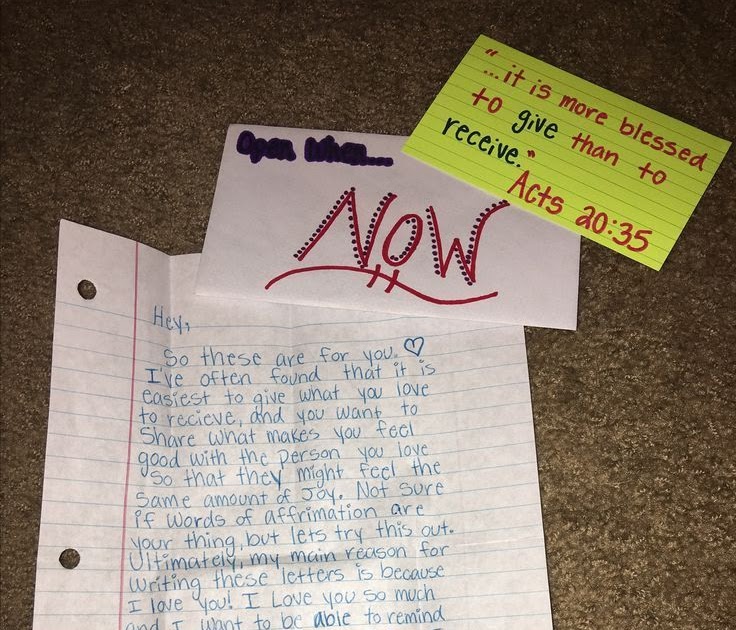 "...it is more blessed
to give than to
receive."
Acts 20:35
Open When....
NOW
Hey,
So these are for you. ♡
I've often found that it is
easiest to give what you love
to recieve, and you want to
Share what makes you feel
good with the person you love
So that they might feel the
Same amount of Joy. Not Sure
if words of affrimation are
your thing, but lets try this out.
Ultimately, my main reason for
writing these letters is because
I love you! I Love you so much
and I want to be able to remind